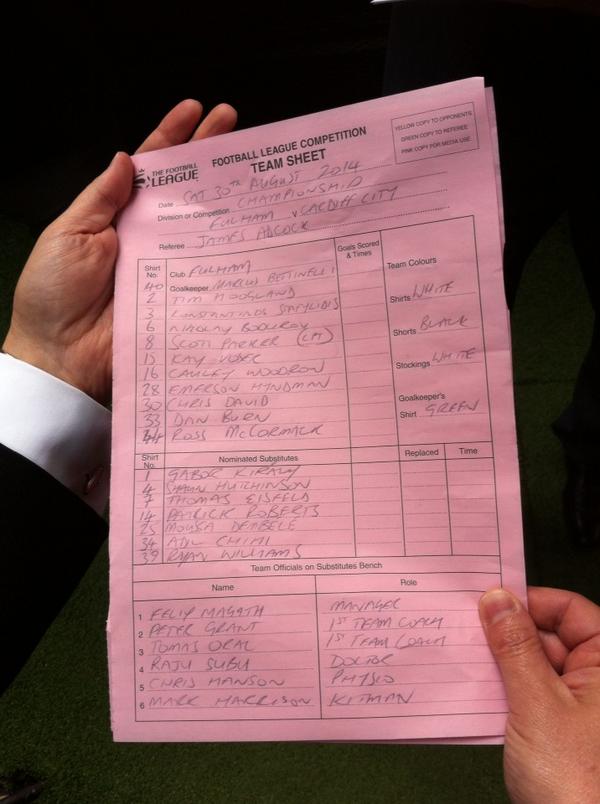 THE FOOTBALL LEAGUE
FOOTBALL LEAGUE COMPETITION
TEAM SHEET
YELLOW COPY TO OPPONENTS
GREEN COPY TO REFEREE
PINK COPY FOR MEDIA USE
Date SAT 30TH AUGUST 2014
Division or Competition CHAMPIONSHIP
FULHAM v CARDIFF CITY
Referee JAMES ADCOCK
Shirt No. Club FULHAM Goals Scored & Times Team Colours
40 Goalkeeper MARCUS BETTINELLI
2 TIM HOOGLAND
3 KONSTANTINOS STAFYLIDIS
6 NIKOLAY BODUROV
8 SCOTT PARKER (CPT)
15 KAY VOSER
16 CAULEY WOODROW
28 EMERSON HYNDMAN
30 CHRIS DAVID
33 DAN BURN
44 ROSS McCORMACK
Shirts WHITE
Shorts BLACK
Stockings WHITE
Goalkeeper's Shirt GREEN
Shirt No. Nominated Substitutes Replaced Time
1 GABOR KIRALY
4 SHAUN HUTCHINSON
7 THOMAS EISFELD
14 PATRICK ROBERTS
25 MOUSA DEMBELE
34 ADIL CHIHI
39 RYAN WILLIAMS
Team Officials on Substitutes Bench
Name Role
1 FELIX MAGATH MANAGER
2 PETER GRANT 1ST TEAM COACH
3 TOMAS ORAL 1ST TEAM COACH
4 RAJU SUBU DOCTOR
5 CHRIS HANSON PHYSIO
6 MARK HARRISON KITMAN